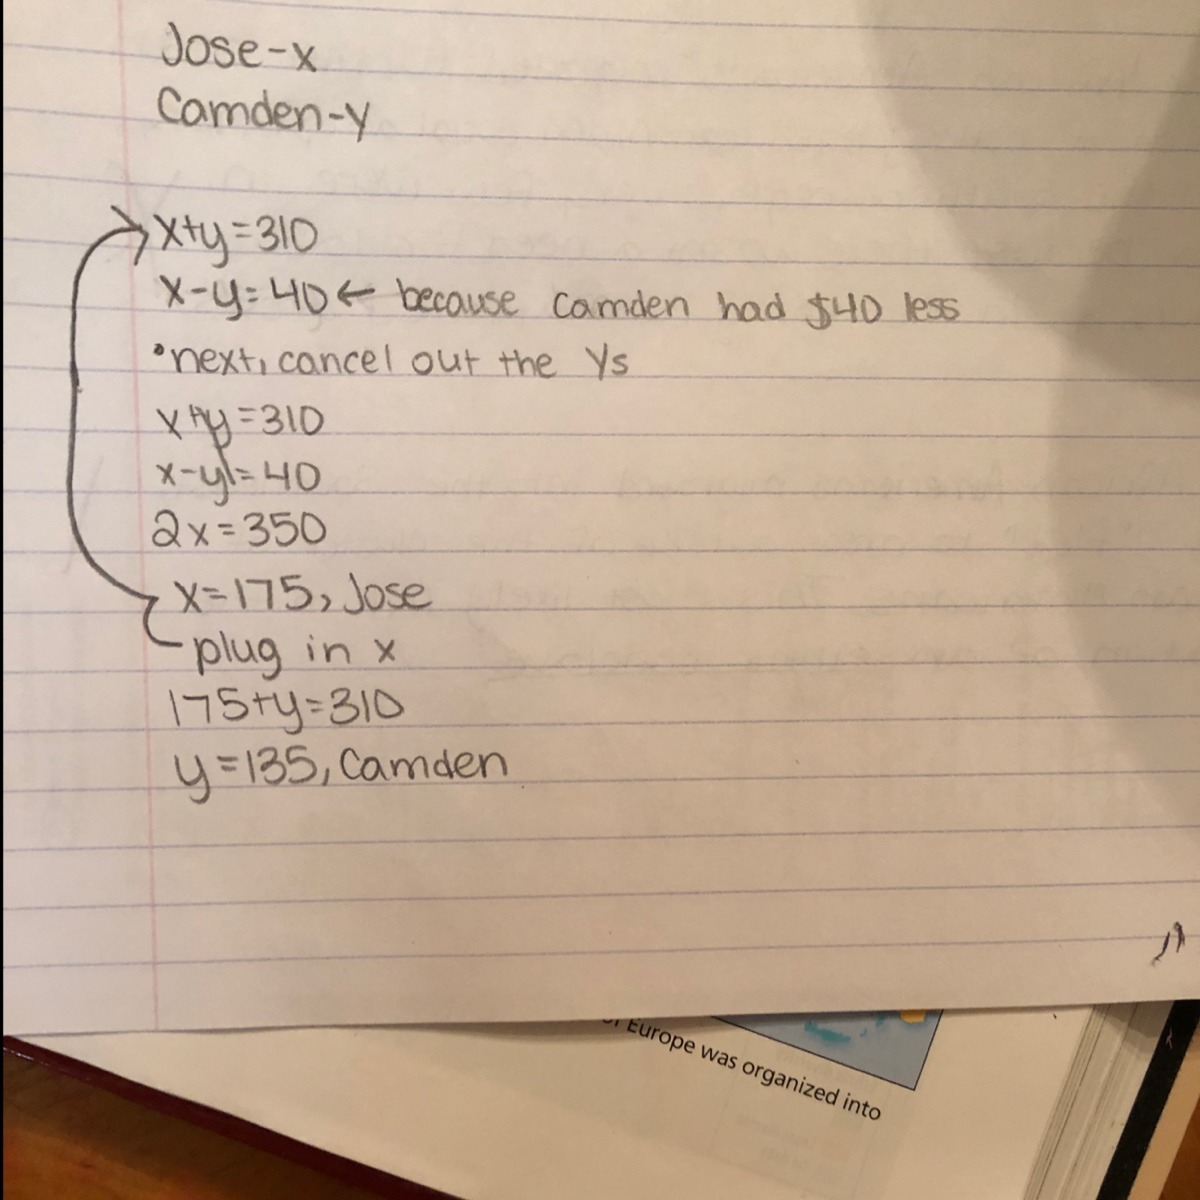 Jose-x
Camden-y
x+y=310
x-y=40← because Camden had $40 less
•next, cancel out the Ys
x+y=310
x-y=40
2x=350
x=175, Jose
plug in x
175+y=310
y=135, Camden
Europe was organized into